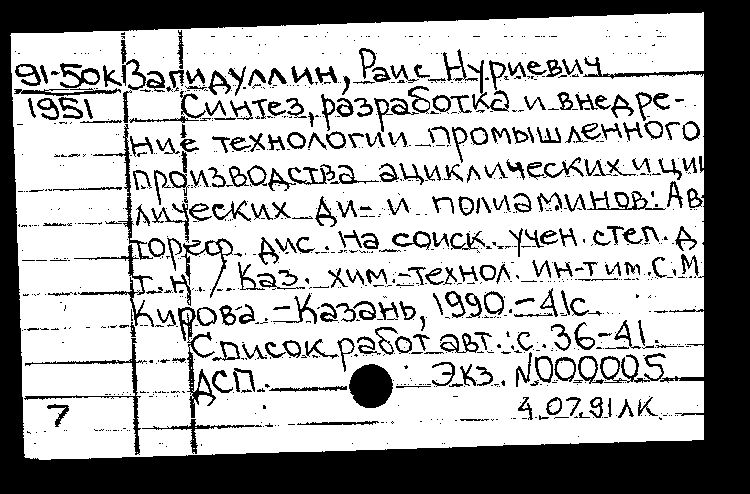 91-50к Загидуллин, Раис Нуриевич
1951 Синтез, разработка и внедре-
ние технологии промышленного
производства ациклических и цик
лических ди- и полиаминов: Ав-
тореф. дис. на соиск. учен. степ. д.
т.н. / Каз. хим.-технол. ин-т им. С.М
Кирова. - Казань, 1990. - 41с.
Список работ авт.: с. 36-41.
ДСП. Экз. N000005
7 4.07.91 ЛК